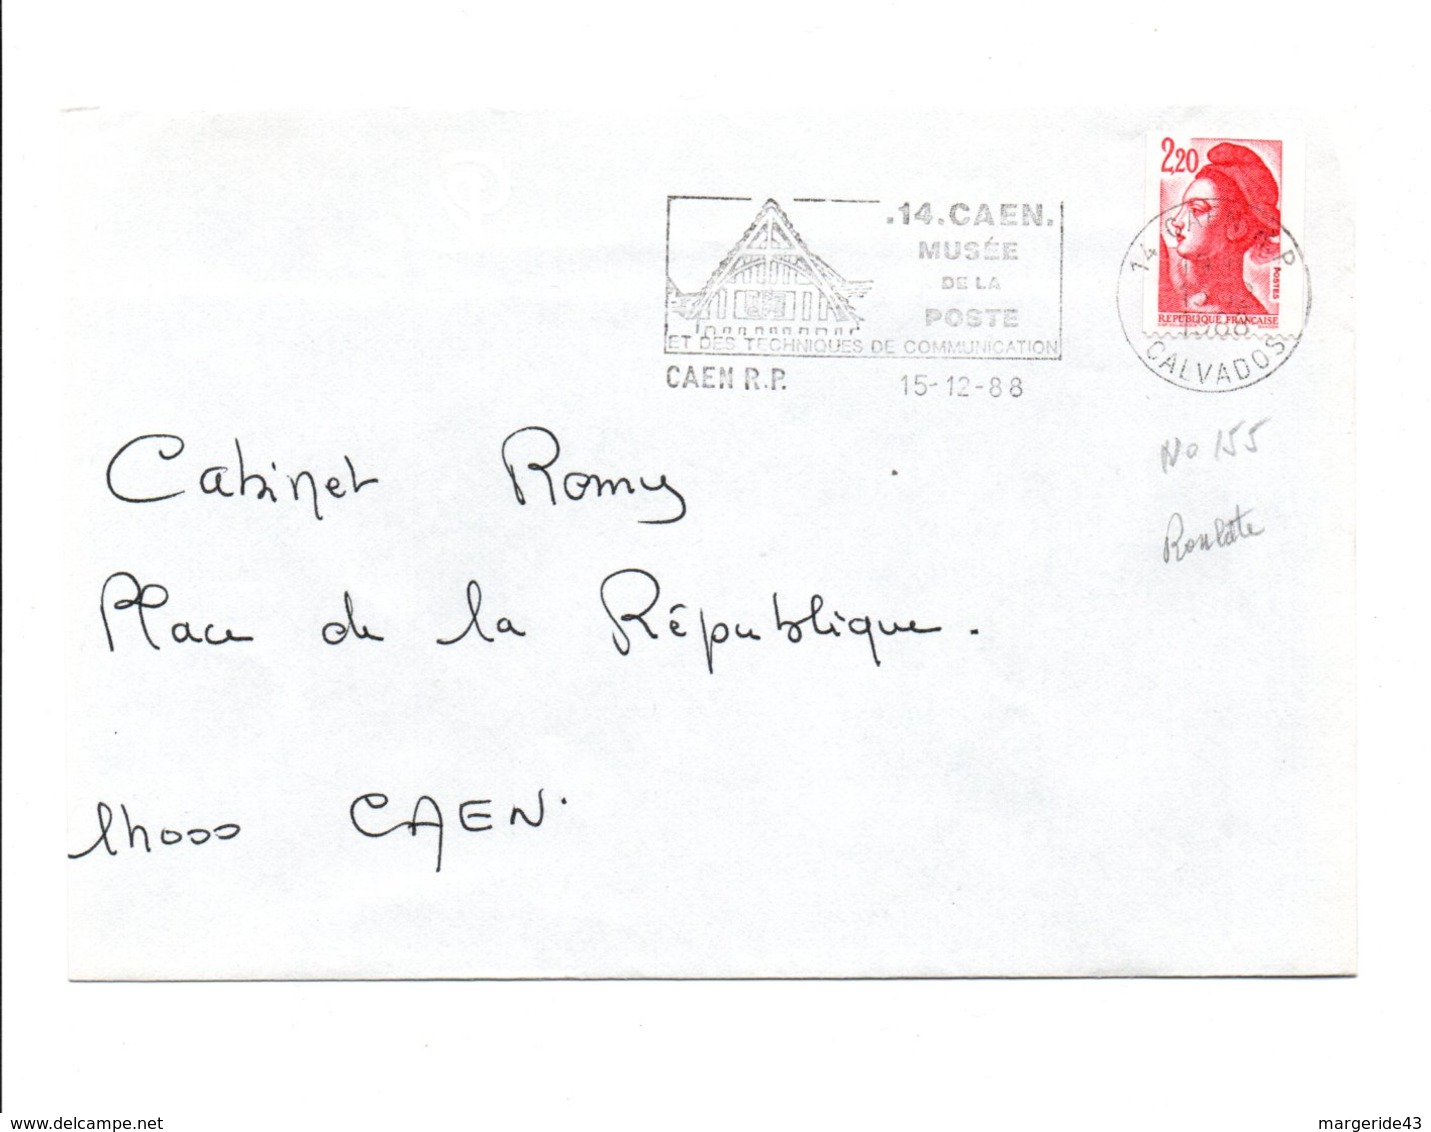 2,20
POSTES
REPUBLIQUE FRANÇAISE
.14.CAEN.
MUSÉE
DE LA
POSTE
ET DES TECHNIQUES DE COMMUNICATION
CAEN R.P. 15-12-88
14 CAEN R.P
1988
CALVADOS
No 155
Roulette
Cabinet Romy
Place de la République.
14000 CAEN.
www.delcampe.net
margeride43